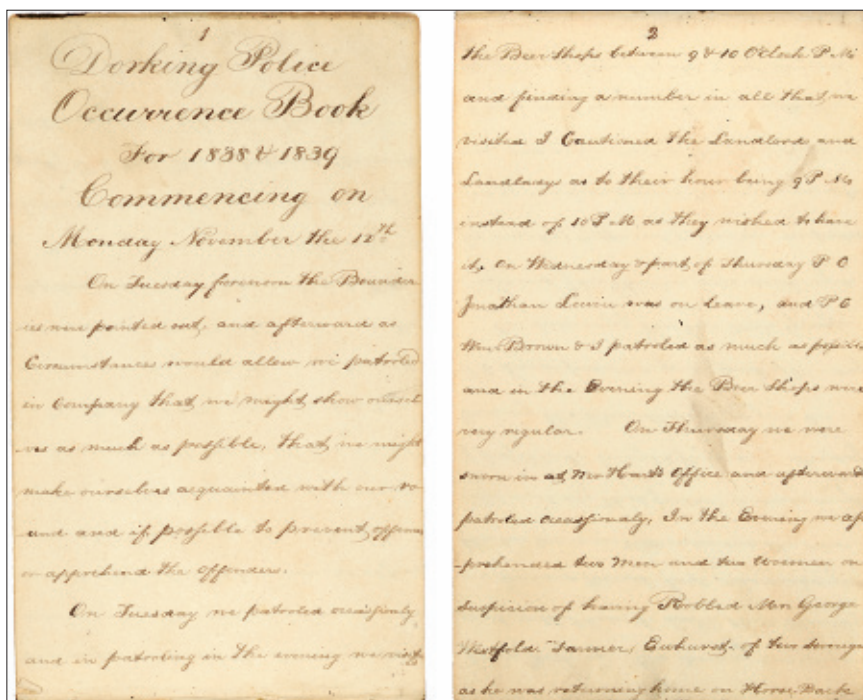 1
Dorking Police
Occurrence Book
For 1838 & 1839
Commencing on
Monday November the 12th
On Tuesday forenoon the Boundar
ies were pointed out, and afterward as
Circumstances would allow we patroled
in Company that we might show oursel
ves as much as possible, that we might
make ourselves aquainted with our ro
und and if possible to prevent offences
or apprehend the Offenders.
On Tuesday we patroled occasionly
and in patroling in the evening we visit
2
the Beer Shops between 9 & 10 OClock P M
and finding a number in all that we
visited I Cautioned the Landlords and
Landladys as to their hour being 9 P M
instead of 10 P M as they wished to have
it, On Wednesday & part of Thursday P C
Jonathan was on leave, and P C
Wm Brown & I patroled as much as possible
and in the Evening the Beer Shops were
very regular. On Thursday we were
sworn in at Mr Harts Office and afterward
patroled occasionaly, In the Evening we ap
-prehended two Men and two Woemen on
Suspicion of having Robbed Mr George
Farmer, Ewhurst, of two
as he was returning home on Horse Back